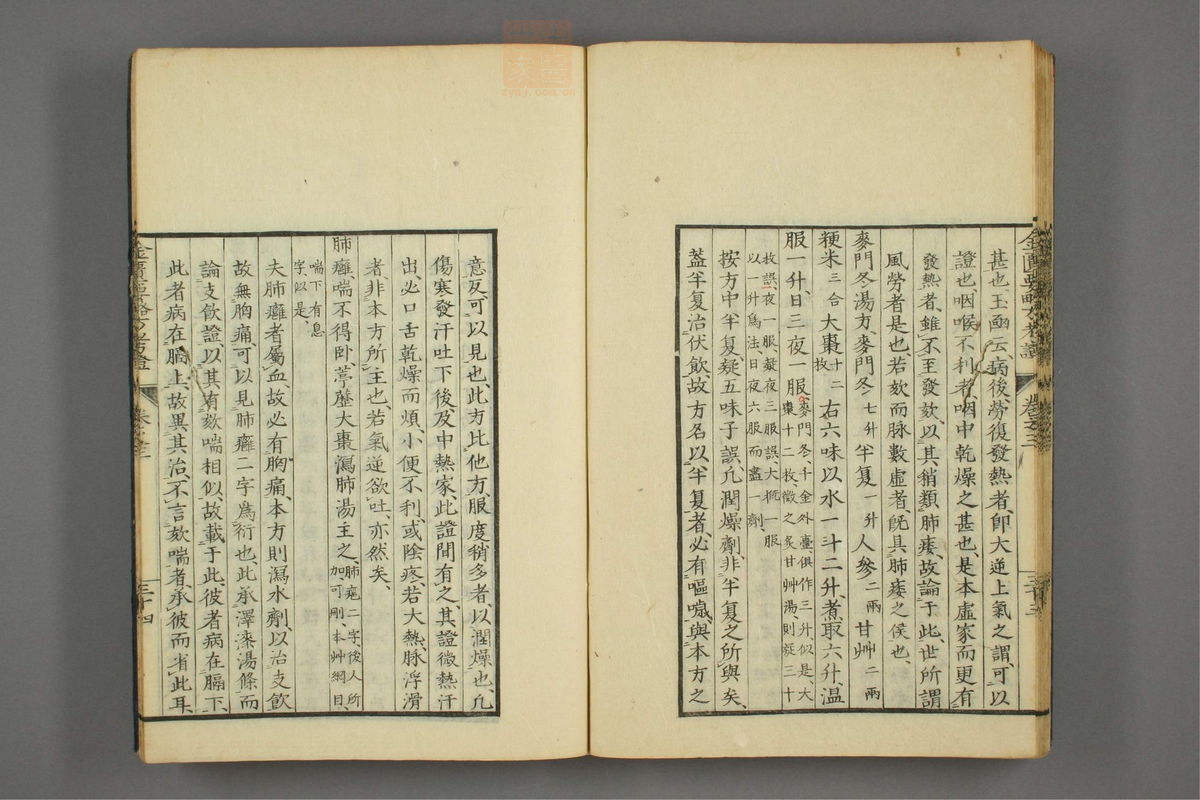 甚也、玉函云、病後勞復發熱者、卽大逆上氣之謂、可以
證也、咽喉不利者、咽中乾燥之甚也、是本虛家而更有
發熱者、雖不至發欬、以其稍類肺痿、故論于此、世所謂
風勞者是也、若欬而脉數虛者、旣具肺痿之候也、
麥門冬湯方、麥門冬七升半夏一升人參二兩甘艸二兩
粳米三合大棗十二枚右六味以水一斗二升、煮取六升、溫
服一升、日三夜一服、麥門冬千金外臺俱作三升似是、大棗十二枚、徵之炙甘艸湯則疑三十
枚誤、夜一服、疑夜三服誤、大槪一服以一升爲法、日夜六服而盡一劑、
按方中半夏、疑五味子誤、凢潤燥劑、非半夏之所與矣、
蓋半夏治伏飮、故方名以半夏者、必有嘔噦、與本方之
意反、可以見也、此方比他方、服度稍多者、以潤燥也、凢
傷寒發汗吐下後、及中熱家、此證間有之、其證微熱汗
出、必口舌乾燥而煩、小便不利、或陰疼、若大熱、脉浮滑
者、非本方所主也、若氣逆欲吐、亦然矣、
肺癰、喘不得卧、葶藶大棗瀉肺湯主之、肺癰二字、後人所加、可刪、本艸綱目、
喘下有息字、似是、
夫肺癰者屬血、故必有胸痛、本方則瀉水劑、以治支飮
故無胸痛、可以見肺癰二字爲衍也、此承澤漆湯條而
論支飮證、以其有欬喘相似、故載于此、彼者病在膈下、
此者病在膈上、故異其治、不言欬喘者、承彼而省此耳、